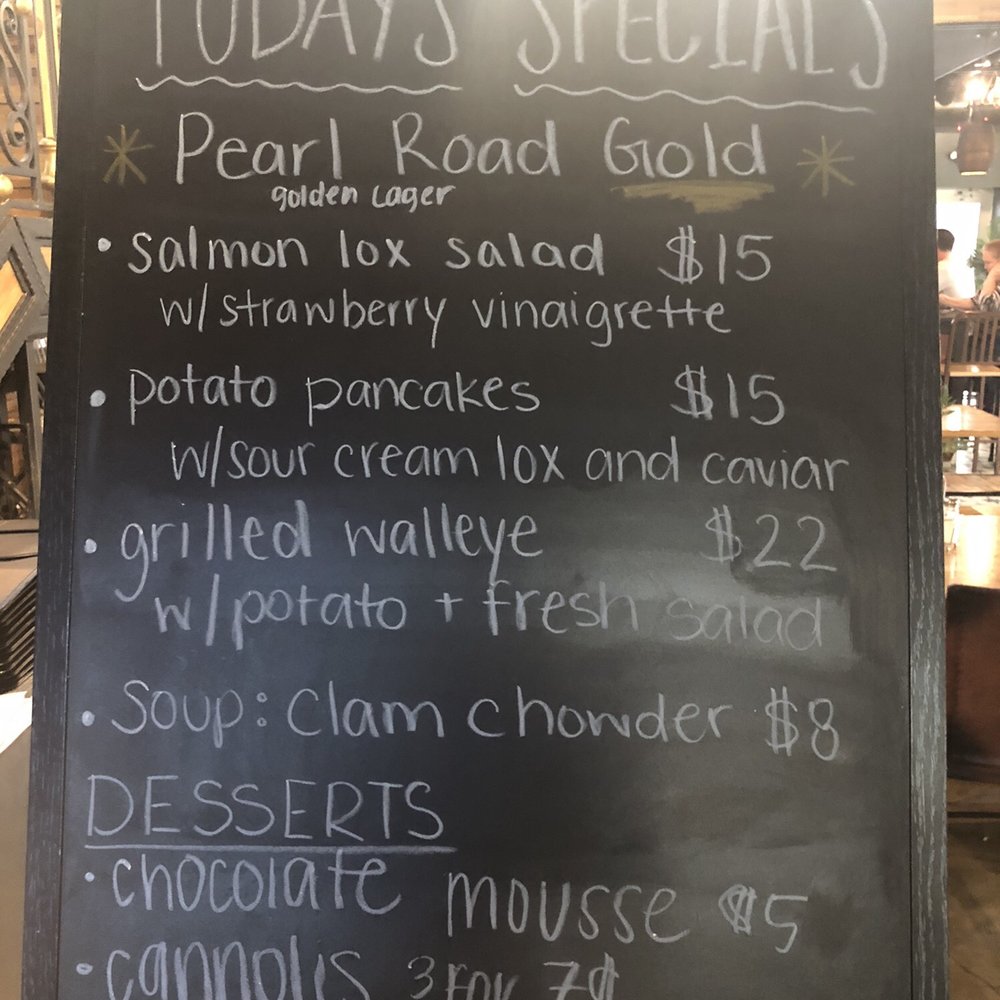 TODAYS SPECIALS
* Pearl Road Gold *
golden Lager
• salmon lox salad $15
w/strawberry vinaigrette
• potato pancakes $15
w/sour cream lox and caviar
• grilled walleye $22
w/potato + fresh salad
• Soup: Clam Chowder $8
DESSERTS
• chocolate mousse $5
• cannolis 3 for 7$